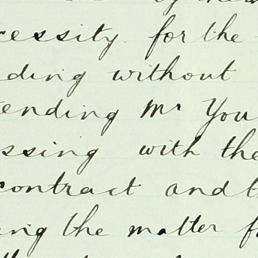 cessity for the
ding without
ending Mr You
ssing with the
contract and t
ing the matter f